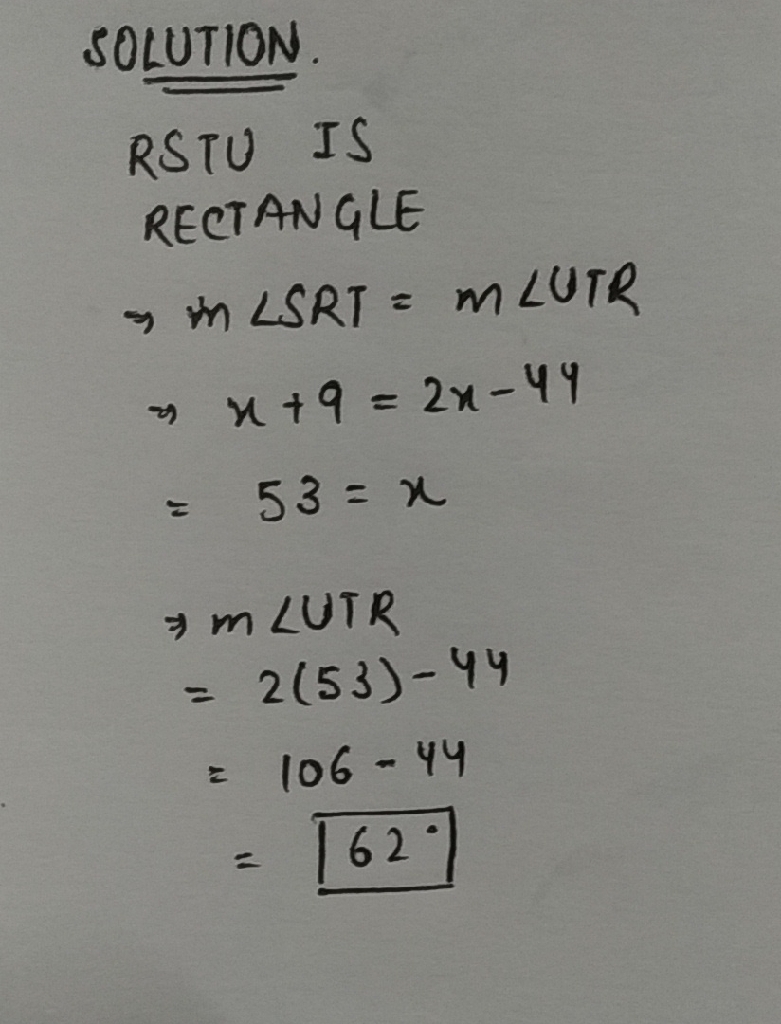 SOLUTION.
RSTU IS
RECTANGLE
⇒ m ∠SRT = m ∠UTR
⇒ x + 9 = 2x - 44
= 53 = x
⇒ m ∠UTR
= 2(53) - 44
= 106 - 44
= 62°